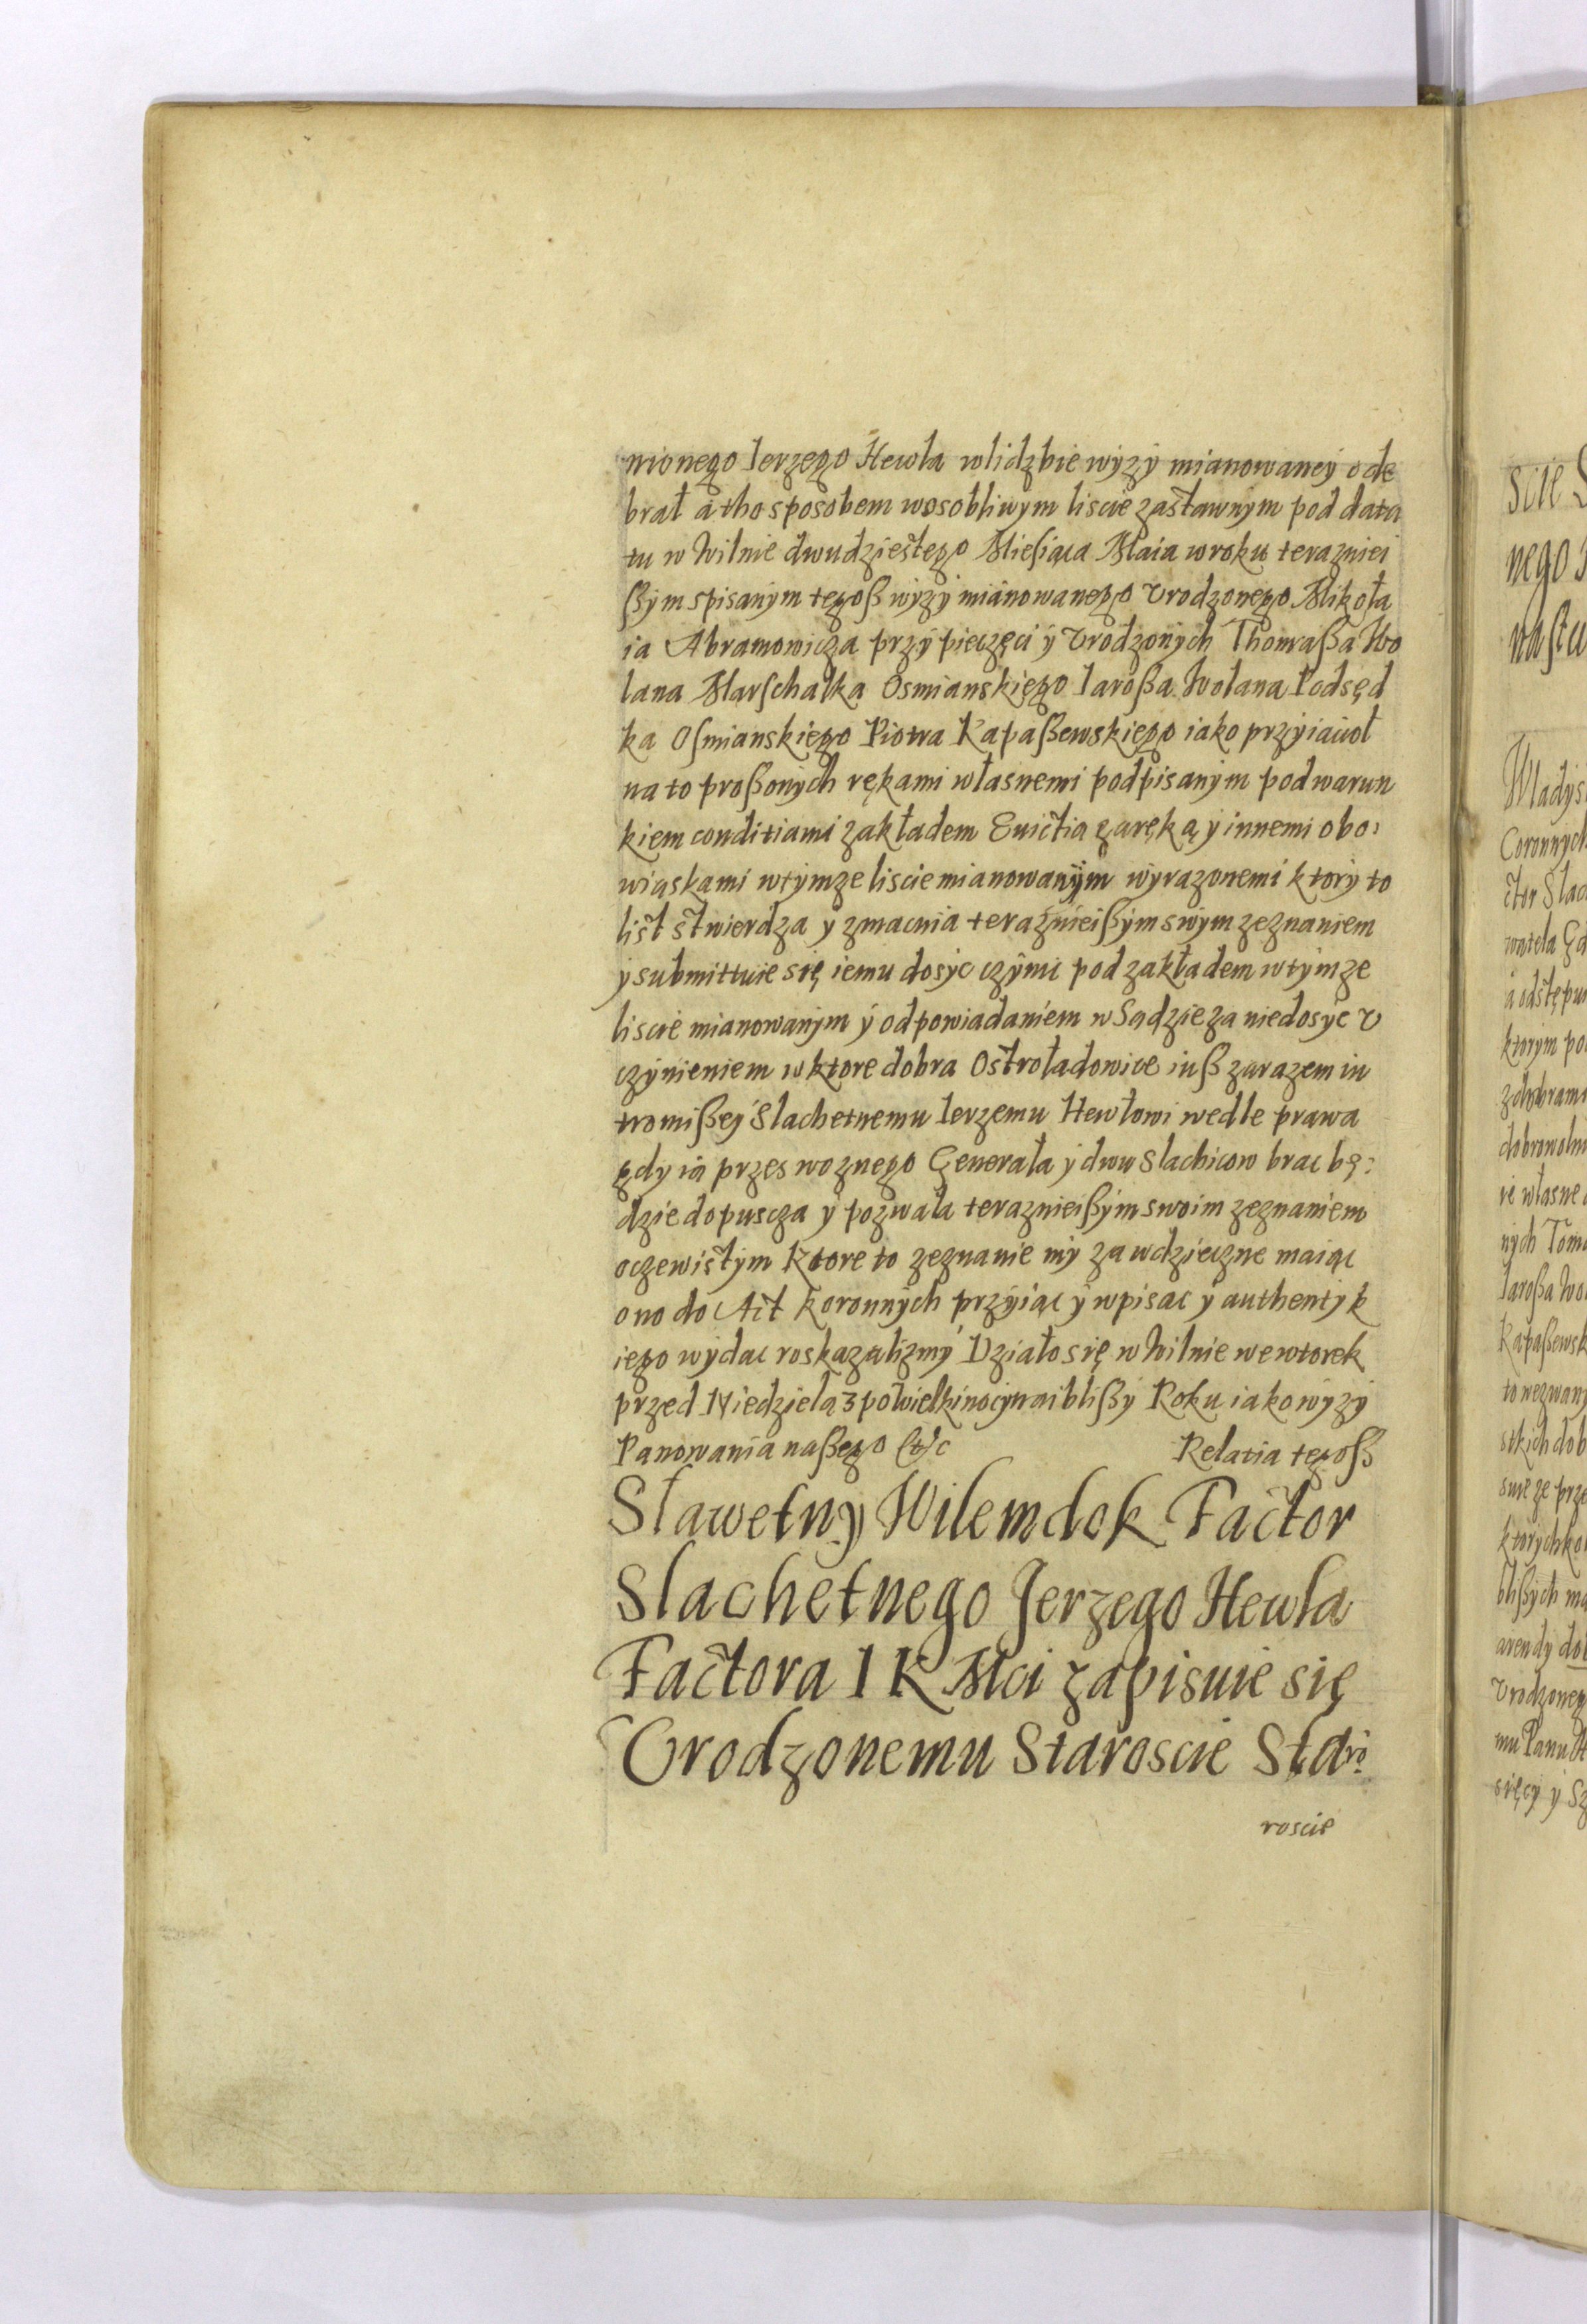 nionego Ierzego Hewla wlidzbie wyzy mianowaney ode
brał a tho sposobem wosobliwym liscie zastawnym pod data
tu w Wilnie dwudziestego Miesiąca Maia wroku terazniei
ßym spisanym tegoß wyzy mianowanego Vrodzonego Mikoła
ia Abramowicza przy pieczęci y Vrodzonych Thomaßa Wo
lana Marschałka Osmianskiego Iaroßa Wolana Podsęd
ka Osmianskiego Piotra Kapaßewskiego iako przyiaciol
na to proßonych rękami własnemi podpisanym pod warun
kiem conditiami zakładem Euictią zaręką y innemi obo:
wiąskami wtymze liscie mianowanym wyrazonemi ktory to
list stwierdza y zmacnia teraznieißym swym zeznaniem
y submittuie się iemu dosyc czymi pod zakładem wtymze
liscie mianowanym y odpowiadaniem w Sądzie za niedosyc V
czynieniem w ktore dobra Ostroładowice iuß zarazem in
tromißey Slachetnemu Ierzemu Hewłowi wedle prawa
gdy ią przes woznego Generała y dwu Slachicow brac bę:
dzie dopuscza y pozwala teraznieißym swoim zeznaniem
oczewistym Ktore to zeznanie my za wdzieczne maiąc
ono do Act koronnych przyiąc y wpisac y authentyk
iego wydac roskazalizmy Działo się w Wilnie we wtorek
przed Niedzielą 3 po wielkinocy naiblißy Roku iako wyzy
Panowania naßego &c Relatia tegoß
Sławetny Wilem dok Factor
Slachetnego Jerzego Hewla
Factora I K Mci zapisuie się
Vrodzonemu Staroscie Staro:
roscie
scie
nego
nastu
Wladys
Coronnych
ctor Slac
watela
a odstępu
ktorym po
zdobrami
dobrowoln
ie własne
nych Toma
Iaroßa Wo
Kapaßewsk
to wezwany
stkich dob
suie ze prze
ktorychko
blißych ma
arendy dob
Vrodzoneg
mu Panu
sięcy y Sz